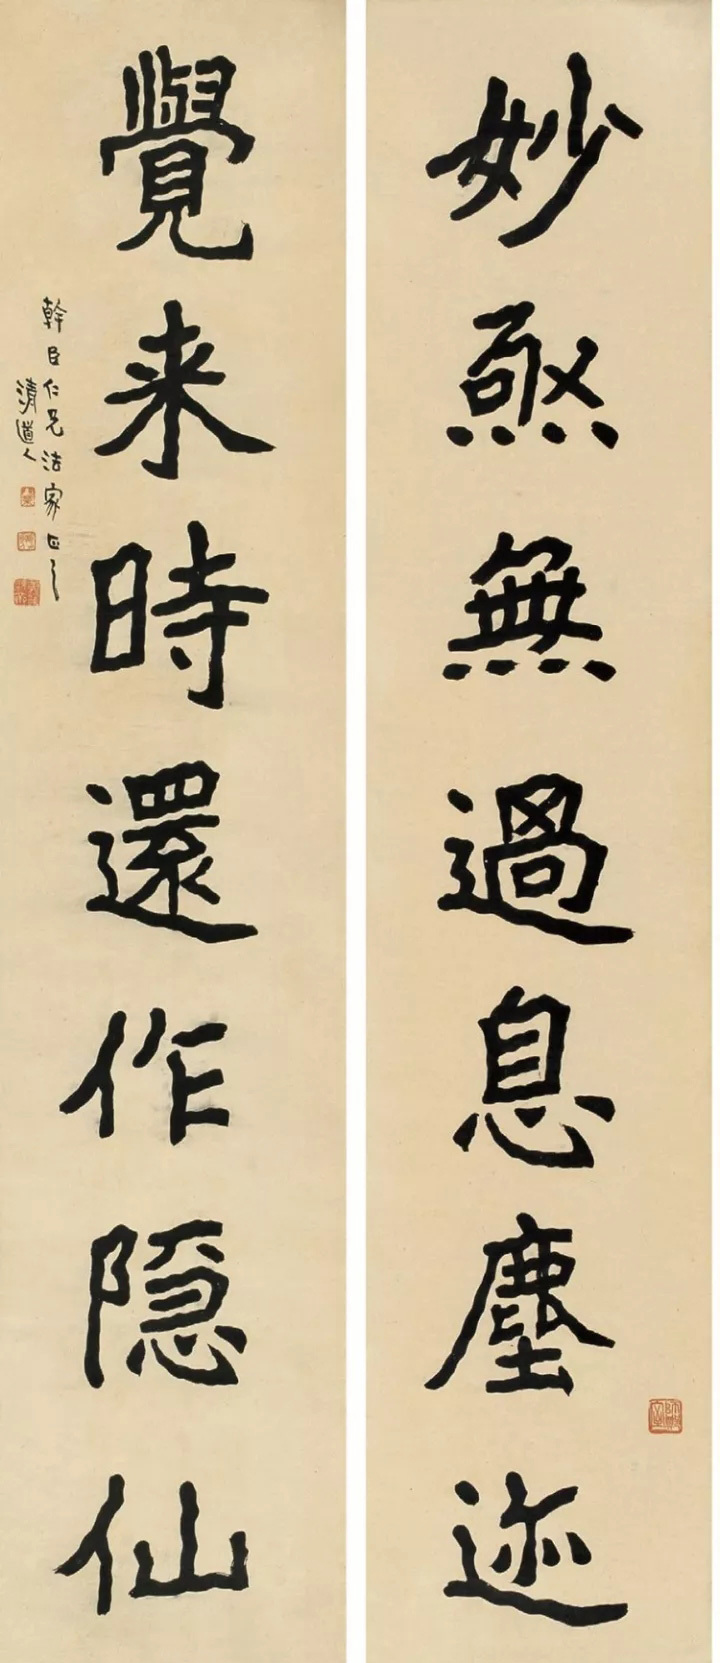 妙煞無過息塵迹
覺来時還作隐仙
幹臣仁兄法家正之
清道人